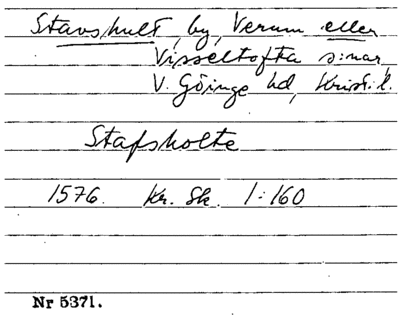 Stavshult, by, Verum eller
Visseltofta s:nar,
V. Göinge hd, Krist. l.
Stafsholte
1576. Kr. Sk. 1:160
Nr 5371.